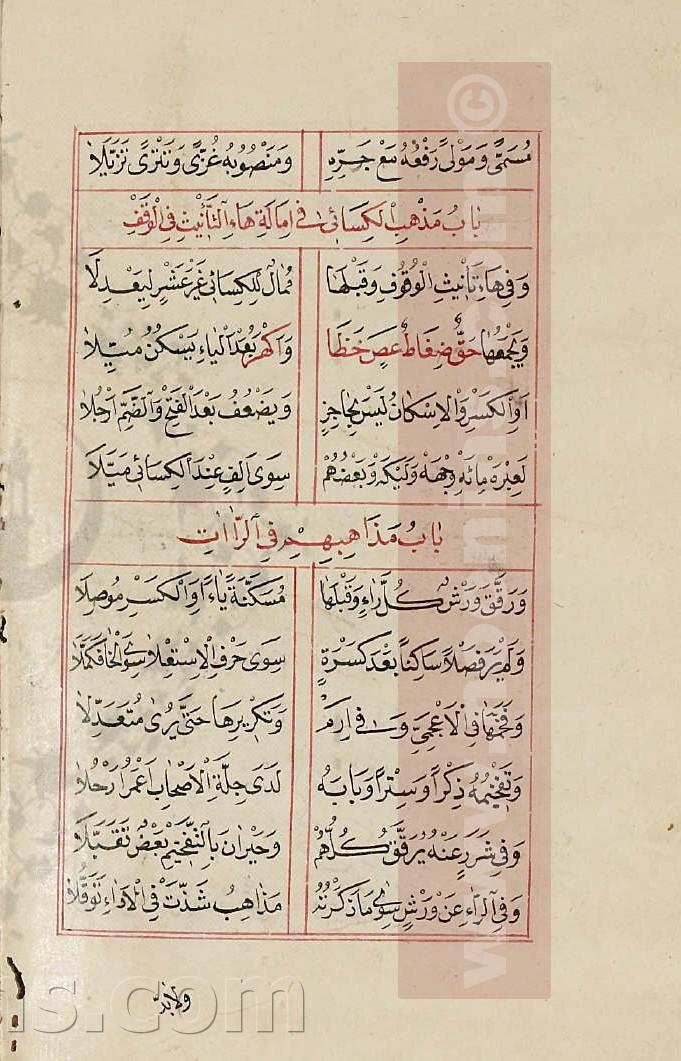 مُسَمًّى وَمَوْلًى رَفْعُهُ مَعْ جَرِّهِ وَمَنْصُوبُهُ غُزًّى وَتَتْرًى تَزَيَّلَا
بَابُ مَذْهَبِ الْكِسَائِيِّ فِي إِمَالَةِ هَاءِ التَّأْنِيثِ فِي الْوَقْفِ
وَفِي هَاءِ تَأْنِيثِ الْوُقُوفِ وَقَبْلَهَا مُمَالُ الْكِسَائِي غَيْرَ عَشْرٍ لِيَعْدِلَا
وَيَجْمَعُهَا حَقٌّ ضِغَاطُ عَصٍ خَظَا وَأَكْهَرُ بَعْدَ الْيَاءِ يَسْكُنُ مُيِّلَا
أَوِ الْكَسْرِ وَالْإِسْكَانُ لَيْسَ بِحَاجِزٍ وَيَضْعُفُ بَعْدَ الْفَتْحِ وَالضَّمِّ أَرْجُلَا
لَعِبْرَهْ مِائَهْ وِجْهَهْ وَلَيْكَهْ وَبَعْضُهُمْ سِوَى أَلِفٍ عِنْدَ الْكِسَائِي مَيَّلَا
بَابُ مَذَاهِبِهِمْ فِي الرَّاآتِ
وَرَقَّقَ وَرْشٌ كُلَّ رَاءٍ وَقَبْلَهَا مُسَكَّنَةً يَاءٌ أَوِ الْكَسْرُ مُوصَلَا
وَلَمْ يَرَ فَصْلًا سَاكِنًا بَعْدَ كَسْرَةٍ سِوَى حَرْفِ الِاسْتِعْلَا سِوَى الْخَا فَكَمَّلَا
وَفَخَّمَهَا فِي الْأَعْجَمِيِّ وَفِي إِرَمْ وَتَكْرِيرِهَا حَتَّى يُرَى مُتَعَدِّلَا
وَتَفْخِيمُهُ ذِكْرًا وَسِتْرًا وَبَابَهُ لَدَى جِلَّةِ الْأَصْحَابِ أَعْمَرُ أَرْحُلَا
وَفِي شَرَرٍ عَنْهُ يُرَقِّقُ كُلُّهُمْ وَحَيْرَانَ بِالتَّفْخِيمِ بَعْضٌ تَقَبَّلَا
وَفِي الرَّاءِ عَنْ وَرْشٍ سِوَى مَا ذَكَرْتُهُ مَذَاهِبُ شَذَّتْ فِي الْأَدَاءِ تَوَقُّلَا
وَلَابُدَّ